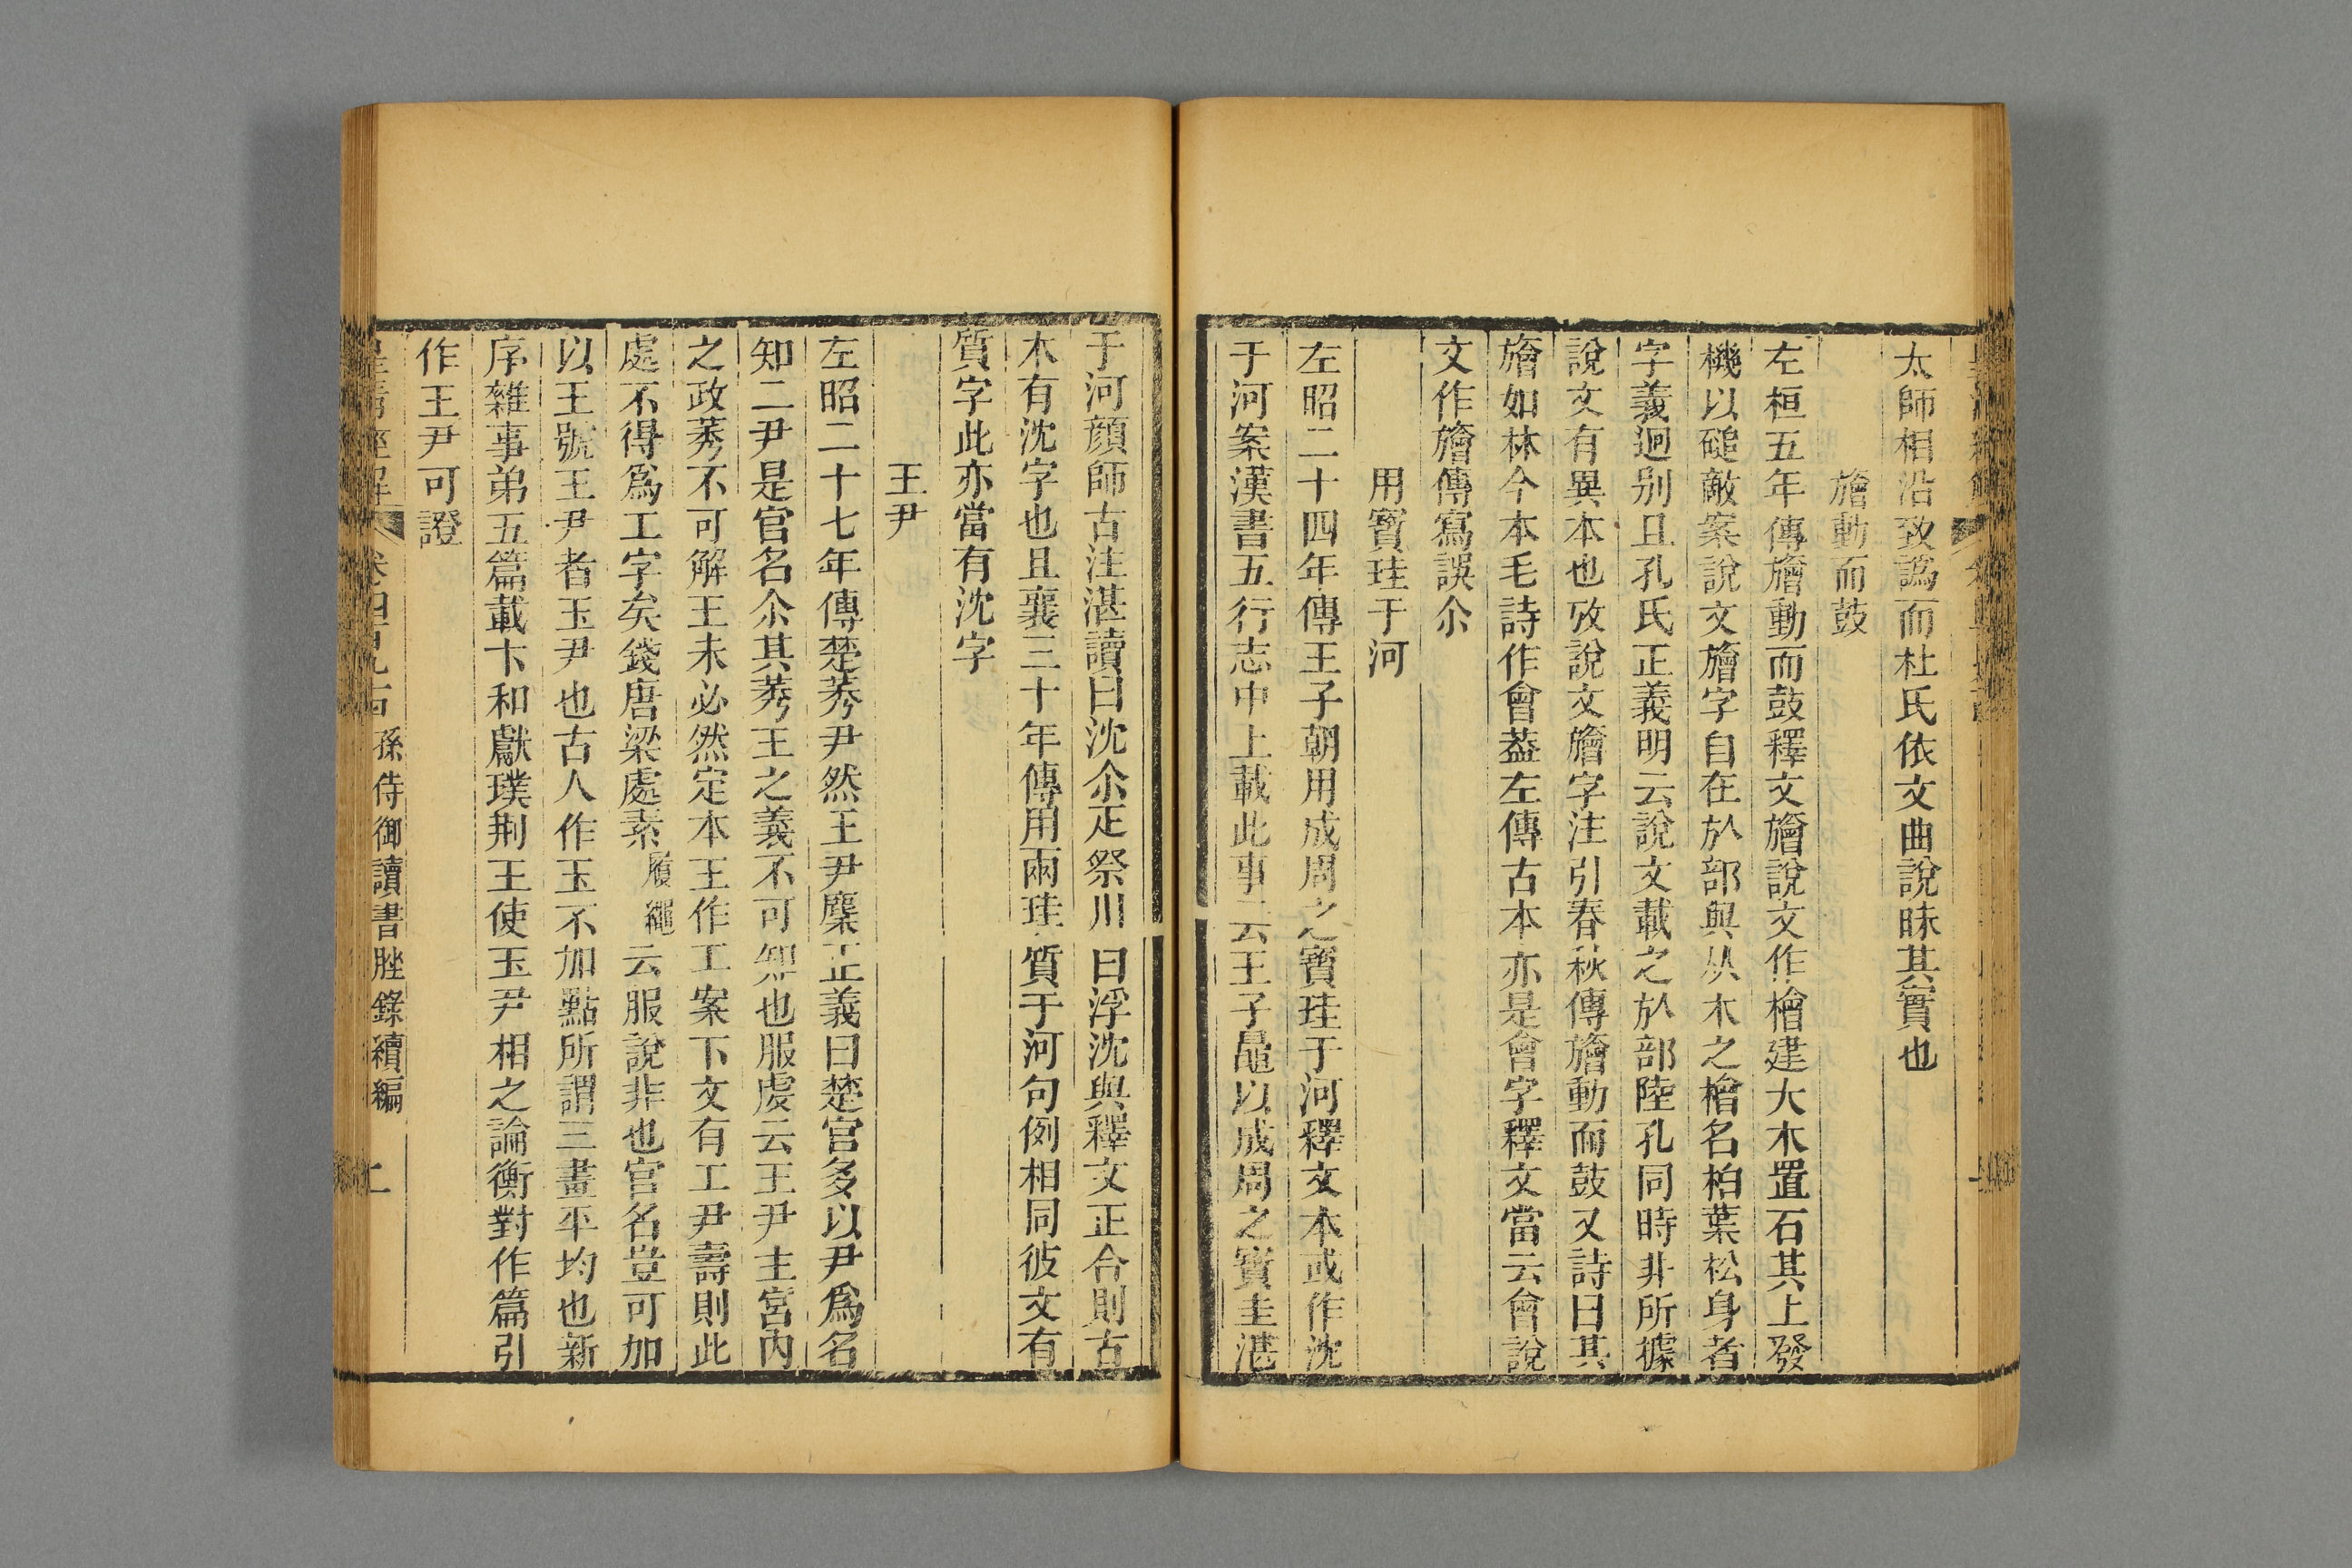 太師相沿致譌而杜氏依文曲說昧其實也
旝動而鼓
左桓五年傳旝動而鼓釋文旝說文作檜建大木置石其上發
機以磓敵案說文旝字自在㫃部與从木之檜名柏葉松身者
字義迥别且孔氏正義明云說文載之㫃部陸孔同時非所據
說文有異本也攷說文旝字注引春秋傳旝動而鼓又詩曰其
旝如林今本毛詩作會葢左傳古本亦是會字釋文當云會說
文作旝傳寫誤尒
用寳珪于河
左昭二十四年傳王子朝用成周之寳珪于河釋文本或作沈
于河案漢書五行志中上載此事云王子鼂以成周之寳圭湛
于河顔師古注湛讀曰沈尒疋祭川曰浮沈與釋文正合則古
本有沈字也且襄三十年傳用兩珪質于河句例相同彼文有
質字此亦當有沈字
王尹
左昭二十七年傳楚莠尹然王尹麇正義曰楚官多以尹爲名
知二尹是官名尒其莠王之義不可知也服虔云王尹主宮内
之政莠不可解王未必然定本王作工案下文有工尹壽則此
處不得爲工字矣錢唐梁處素履繩云服說非也官名豈可加
以王號王尹者玉尹也古人作玉不加點所謂三畫平均也新
序雜事弟五篇載卞和獻璞荆王使玉尹相之論衡對作篇引
作王尹可證
皇清經解 卷 孫侍御讀書脞錄續編